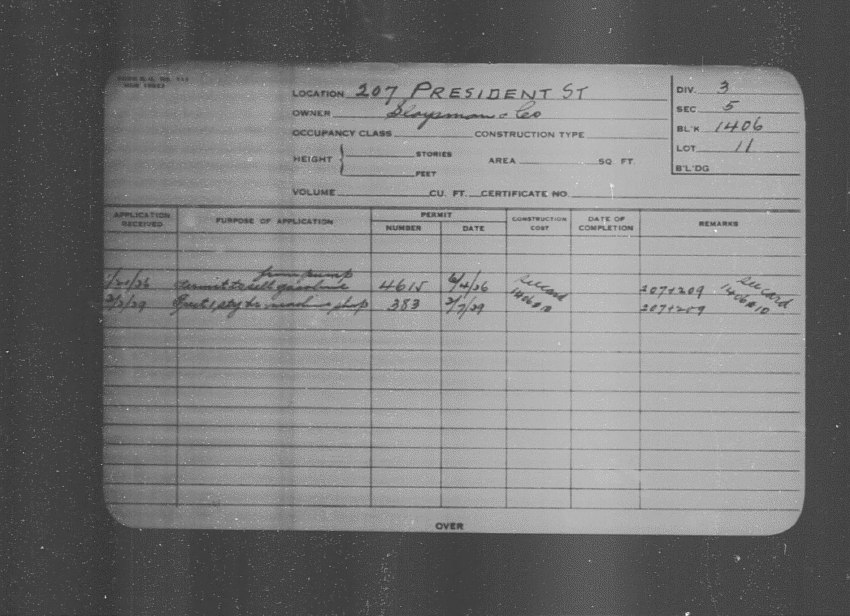 LOCATION 207 PRESIDENT ST
OWNER & Co
OCCUPANCY CLASS CONSTRUCTION TYPE
HEIGHT STORIES AREA SQ FT.
FEET
VOLUME CU. FT. CERTIFICATE NO.
DIV. 3
SEC. 5
BL'K 1406
LOT 11
B'L'DG
APPLICATION RECEIVED PURPOSE OF APPLICATION PERMIT CONSTRUCTION COST DATE OF COMPLETION REMARKS
NUMBER DATE
from pump
permit to sell gasoline 4615 6/4/26 See card 1406 #10 207+209 See card 1406 #10
Erect 1 sty machine shop 383 207+209
OVER